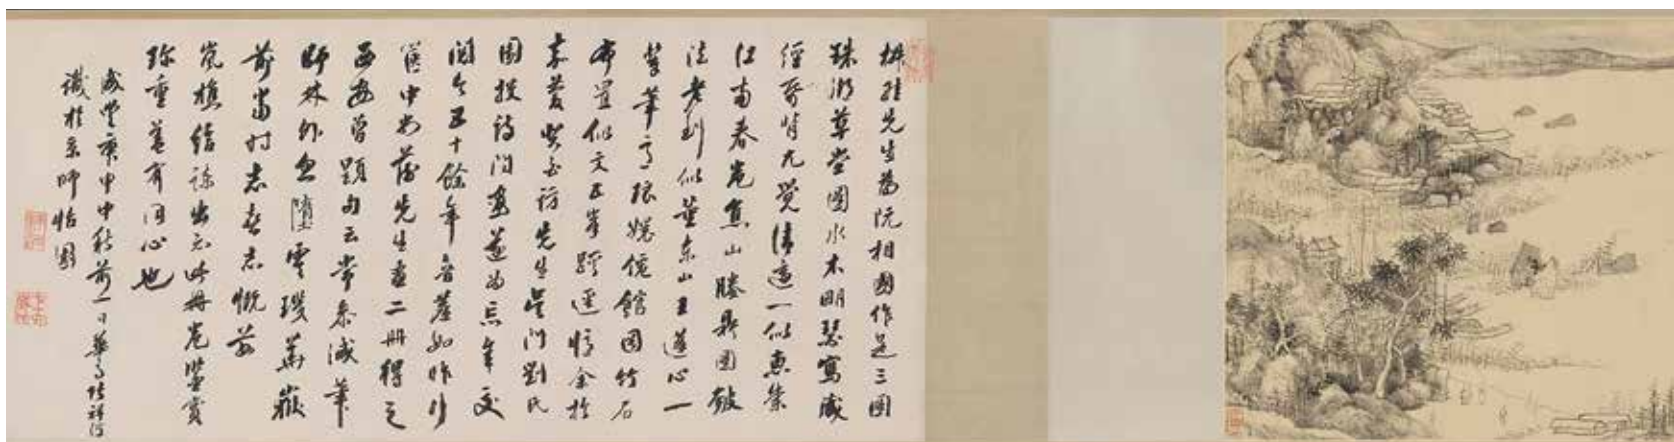 椒畦先生為阮相國作是三圖
珠湖草堂圖水木明瑟寫
尤覺清遠一似惠崇
江南春卷焦山勝景圖皴
法老到似董東山王蓬心一
輩筆意琅嬛僊館圖竹石
布置似文五峯蹊逕憶余於
嘉慶癸酉訪先生吳門劉氏
園投詩問畫遂為忘年交
閱今五十餘年音塵如昨行
篋中尚藏先生畫二冊攜之
西安曾題句云嘗參減筆
師林外思墮雲璈萬嶽
前當時志喜志慨
嵐樵給諫出示此冊卷鑒賞
珍重益有同心也
咸豐庚申中秋前一日華亭張祥河
識於京師怡園